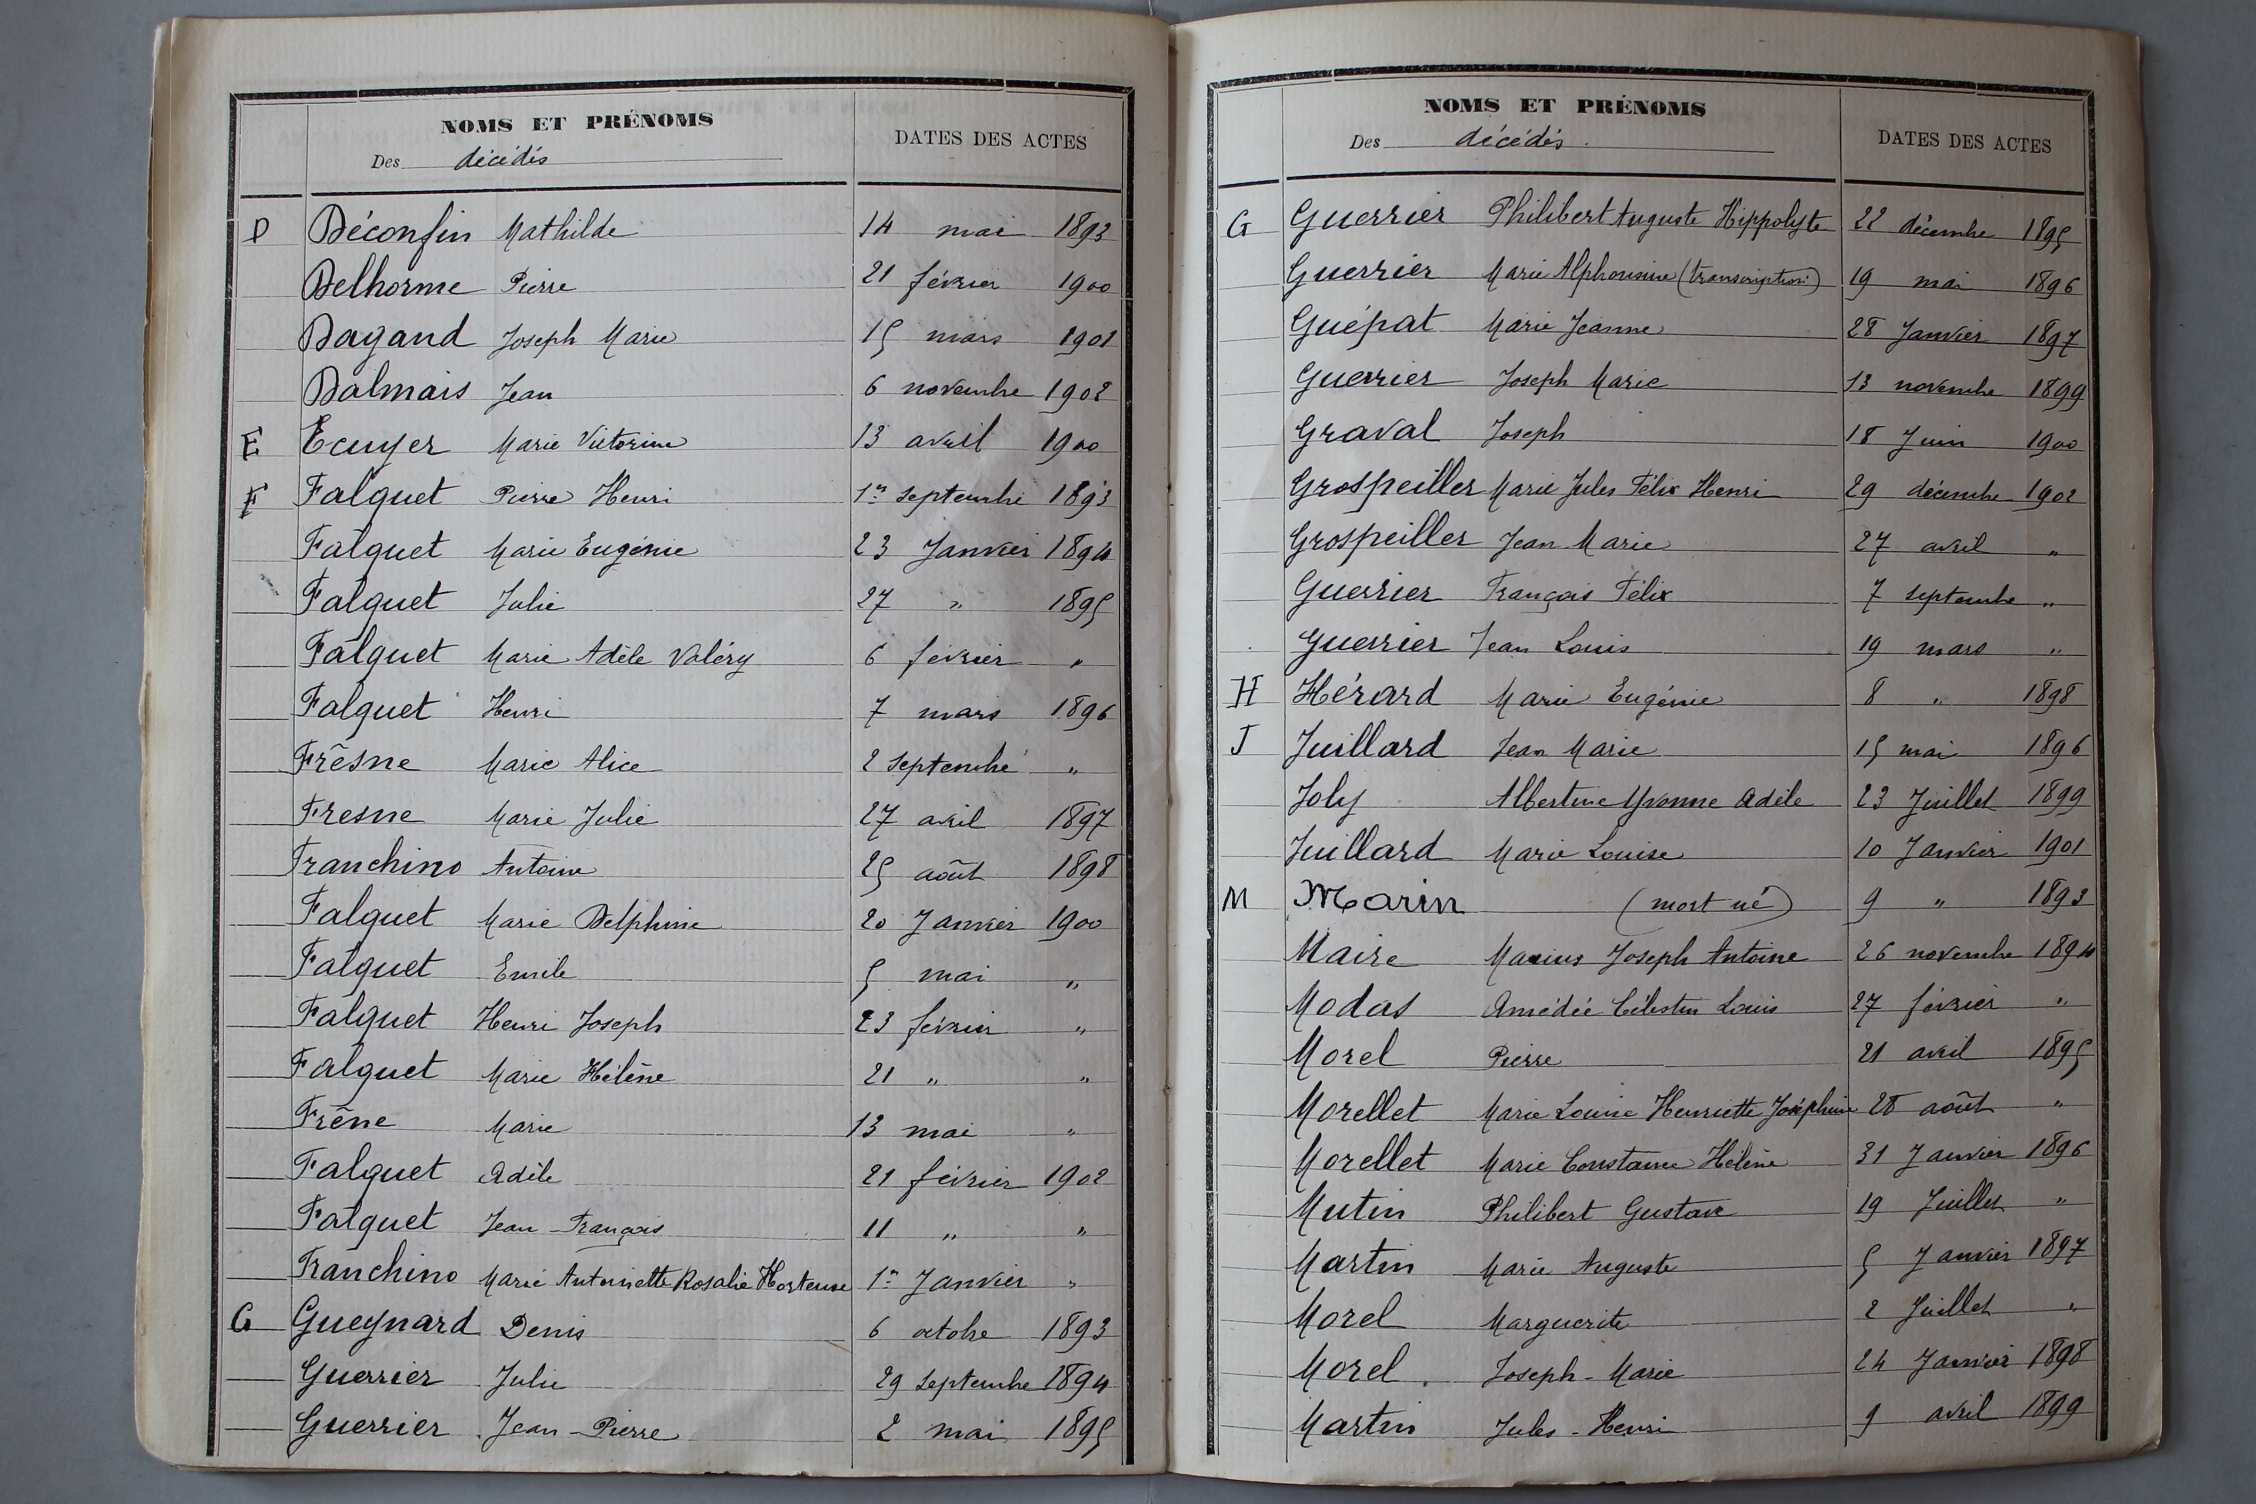 NOMS ET PRÉNOMS
Des décédés
DATES DES ACTES
D Déconfin Mathilde 14 mai 1893
Delhorme Pierre 21 février 1900
Dagand Joseph Marie 15 mars 1901
Dalmais Jean 6 novembre 1902
E Ecuyer Marie Victorine 13 avril 1900
F Falguet Pierre Henri 1er septembre 1893
Falguet Marie Eugénie 23 Janvier 1894
Falguet Julie 27 " 1895
Falguet Marie Adèle Valéry 6 février "
Falguet Henri 7 mars 1896
Frêsne Marie Alice 2 septembre "
Fresne Marie Julie 27 avril 1897
Franchino Antoine 25 août 1898
Falguet Marie Delphine 20 Janvier 1900
Falguet Emile 5 mai "
Falguet Henri Joseph 23 février "
Falguet Marie Hélène 21 " "
Frêne Marie 13 mai "
Falguet Adèle 21 février 1902
Falguet Jean-François 11 " "
Franchino Marie Antoinette Rosalie Hortense 1er Janvier "
G Gueynard Denis 6 octobre 1893
Guerrier Julie 29 septembre 1894
Guerrier Jean-Pierre 2 mai 1895
NOMS ET PRÉNOMS
Des décédés.
DATES DES ACTES
G Guerrier Philibert Auguste Hippolyte 22 décembre 1895
Guerrier Marie Alphonsine (transcription) 19 mai 1896
Guépat Marie Jeanne 28 Janvier 1897
Guerrier Joseph Marie 13 novembre 1899
Graval Joseph 18 Juin 1900
Grospeiller Marie Jules Félix Henri 29 décembre 1902
Grospeiller Jean Marie 27 avril "
Guerrier François Félix 7 septembre "
Guerrier Jean Louis 19 mars "
H Hérard Marie Eugénie 8 " 1898
J Juillard Jean Marie 15 mai 1896
Joly Albertine Yvonne Adèle 23 Juillet 1899
Juillard Marie Louise 10 Janvier 1901
M Marin (mort né) 9 " 1893
Maire Marius Joseph Antoine 26 novembre 1894
Modas Amédée Célestin Louis 27 février "
Morel Pierre 21 avril 1895
Morellet Marie Louise Henriette Joséphine 28 août "
Morellet Marie Constance Hélène 31 Janvier 1896
Mutin Philibert Gustave 19 Juillet "
Martin Marie Auguste 5 Janvier 1897
Morel Marguerite 2 Juillet "
Morel Joseph-Marie 24 Janvier 1898
Martin Jules-Henri 9 avril 1899